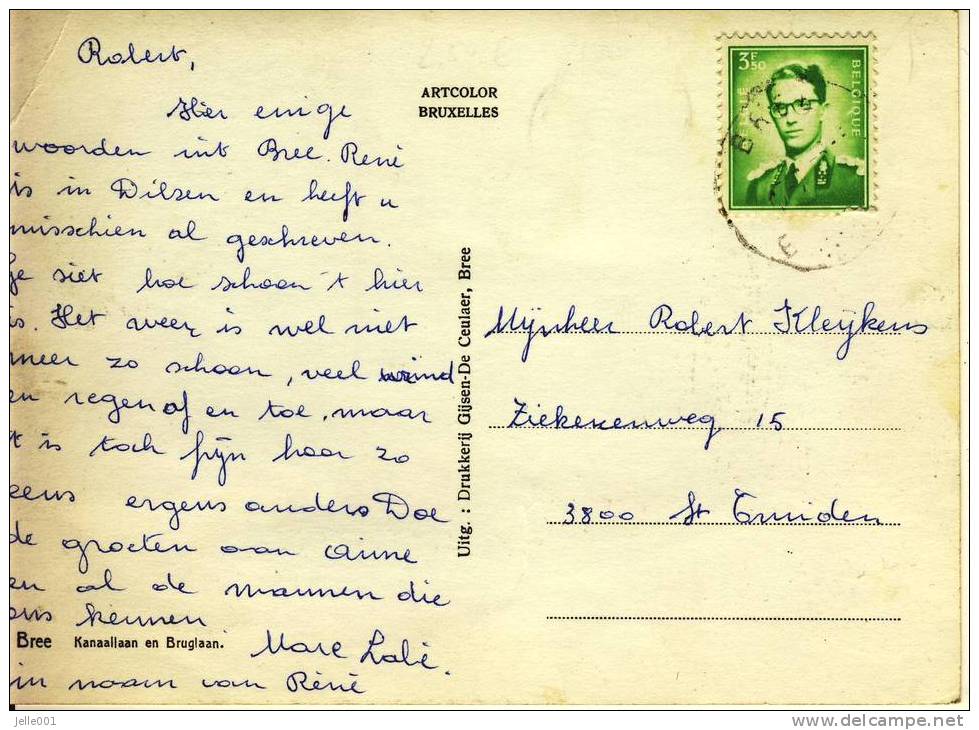 Robert,
Hier enige
woorden uit Bree. René
is in Dilsen en heeft u
misschien al geschreven.
je siet hoe schoon 't hier
is. Het weer is wel niet
meer zo schoon, veel wind
en regen af en toe, maar
't is toch fijn haar zo
eens ergens anders Doe
de groeten aan Anne
en al de mannen die
ons kennen
Marc Labé.
in naam van Réné
Bree Kanaallaan en Bruglaan.
ARTCOLOR
BRUXELLES
Uitg. : Drukkerij Gijsen-De Ceulaer, Bree
3F50
BELGIQUE
BREE
Mijnheer Robert Kleijkens
Ziekerenweg 15
3800 St Truiden
jelle001
delcampe.net